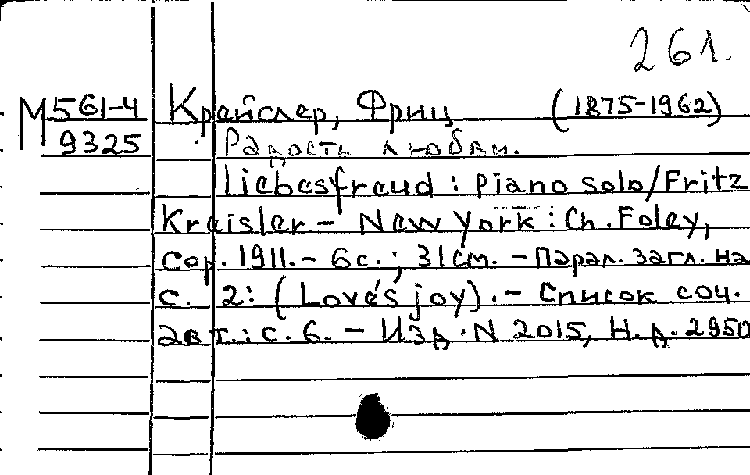 261.
М 561-4 Крейслер, Фриц (1875-1962)
9325 Радость любви.
Liebesfreud : piano solo/Fritz
Kreisler - New York : Ch. Foley,
cop. 1911. - 6 с. ; 31 см. - Парал. загл. на
с. 2: (Love's joy). - Список соч.
авт.: с. 6. - Изд. N 2015, Н. д. 2950